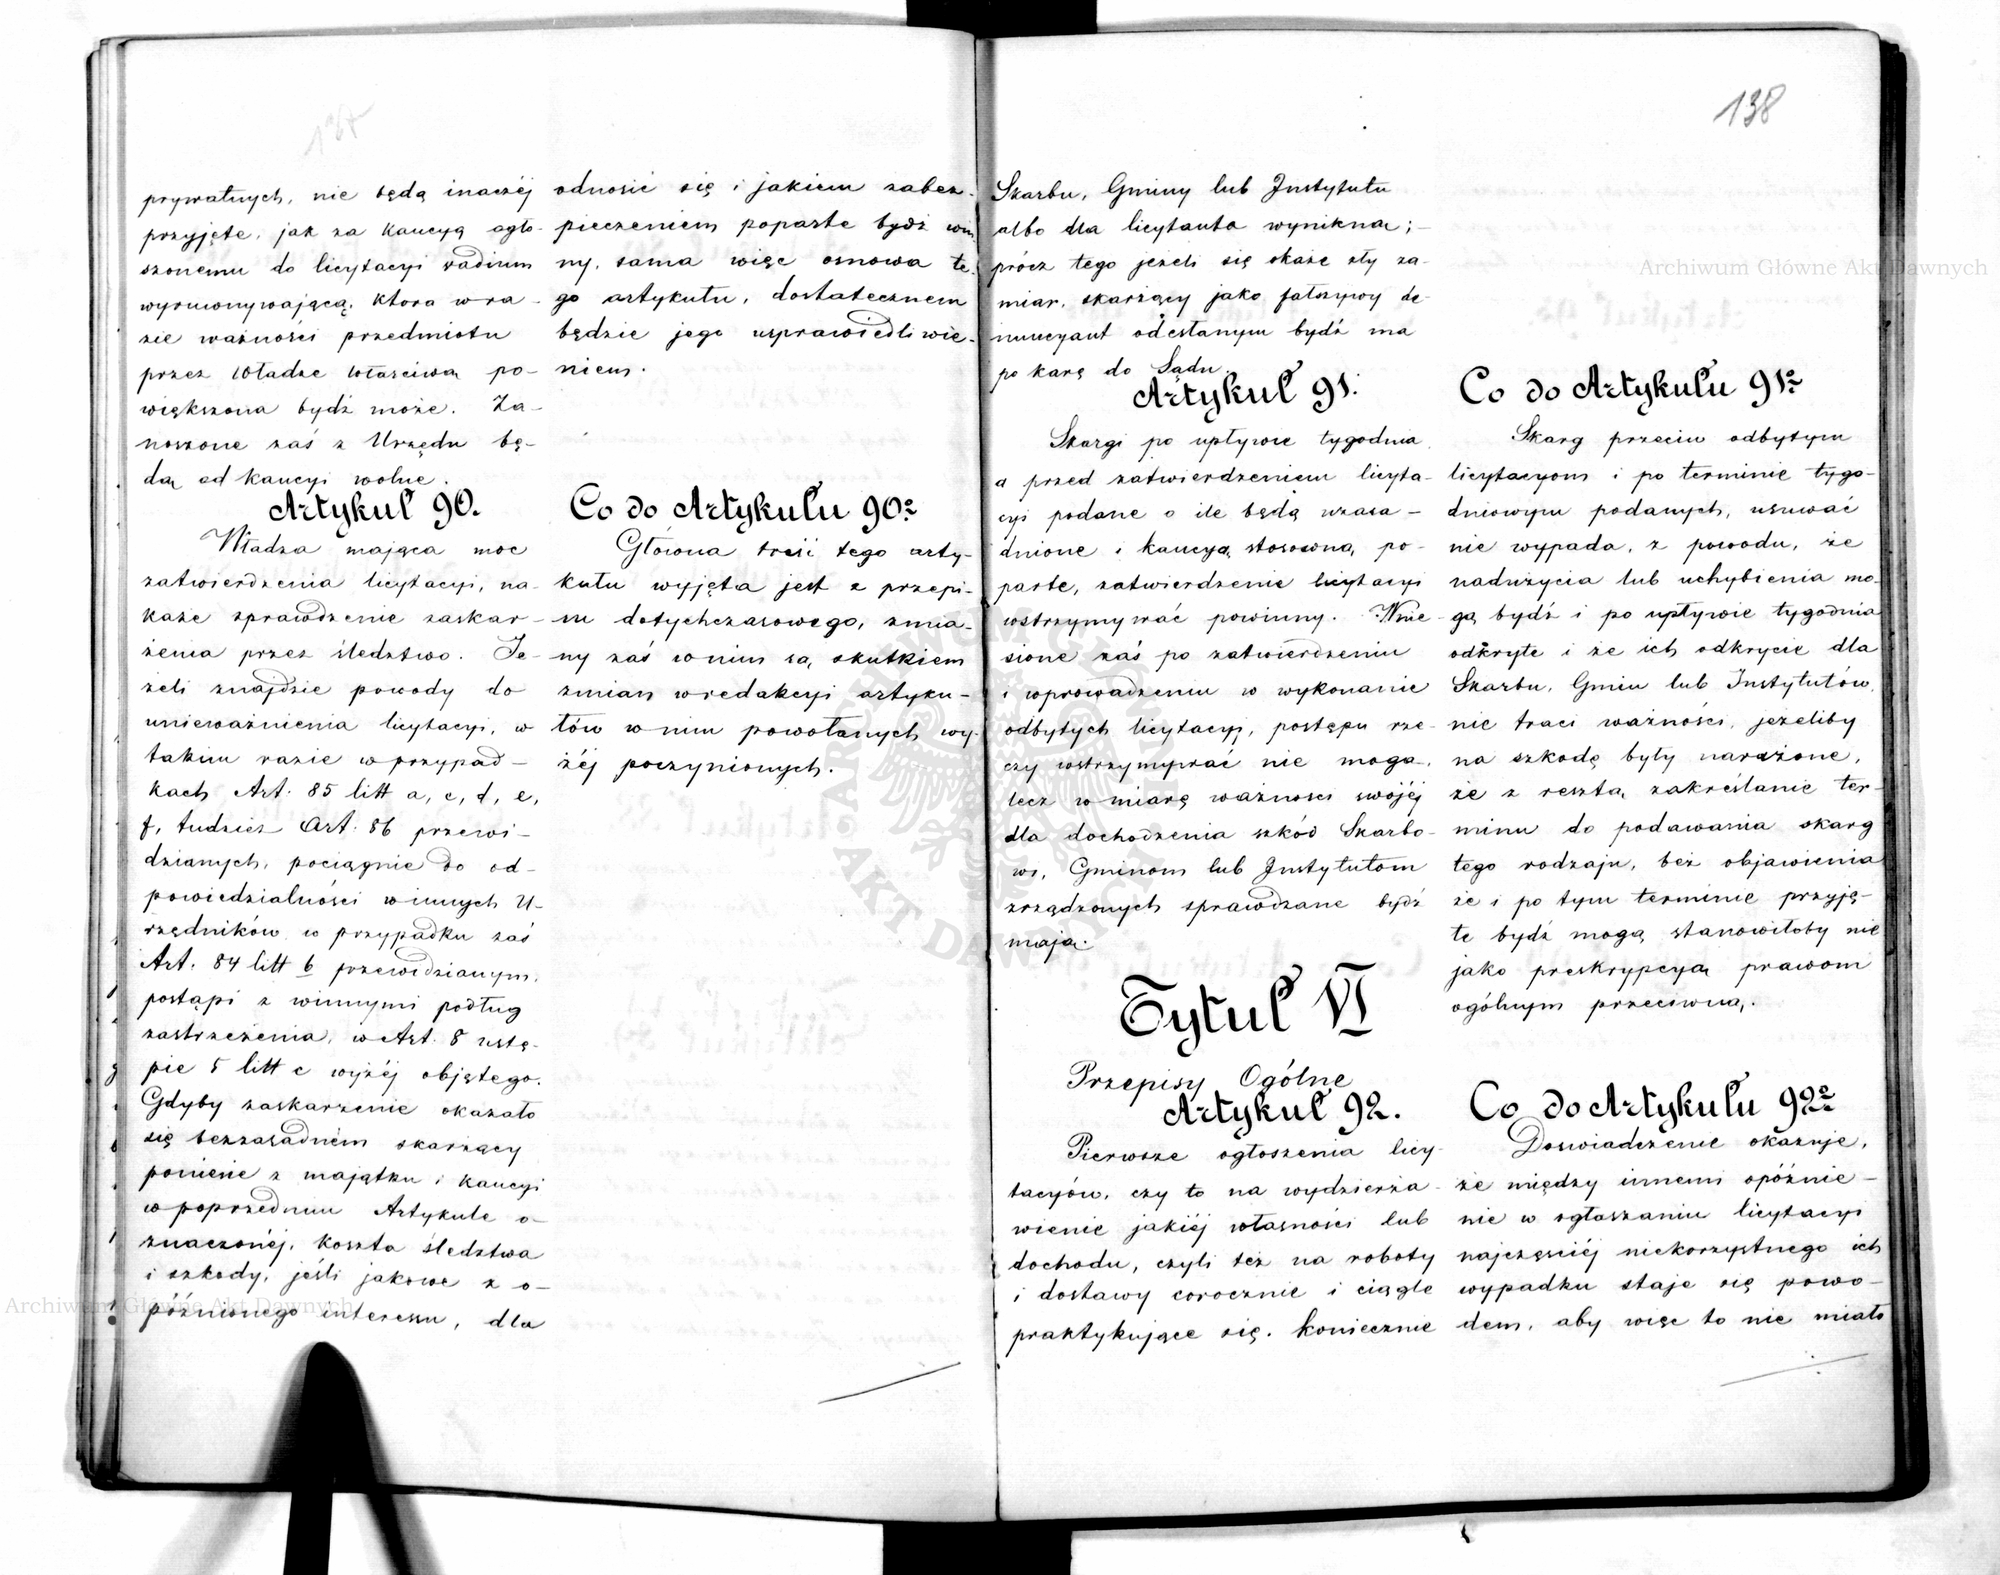 138
prywatnych, nie będą inaczéj
przyjęte, jak za kaucyą ogło-
szonemu do licytacyi vadium
wyrownywającą, ktora w ra-
zie ważności przedmiotu
przez Władze właściwą po-
większona bydź może. Za-
noszone zaś z Urzędu bę-
dą od kaucyi wolne.
Artykuł 90.
Władza mająca moc
zatwierdzenia licytacyi, na-
każe sprawdzenie zaskar-
żenia przez śledztwo. Je-
żeli znajdzie powody do
unieważnienia licytacyi, w
takim razie w przypad-
kach Art. 85 litt a, c, d, e,
f, tudzież Art. 86 przewi-
dzianych, pociągnie do od-
powiedzialności winnych U-
rzędników, w przypadku zaś
Art. 84 litt b przewidzianym,
postąpi z winnymi podług
zastrzeżenia, w Art. 8 ustę-
pie 5 litt c wyżéj objętego.
Gdyby zaskarżenie okazało
się bezzasadném skarżący
poniesie z majątku i kaucyi
w poprzednim Artykule o-
znaczonéj, koszta śledztwa
i szkody, jeśli jakowe z o-
późnionego interessu, dla
odnosić się i jakiem zabez-
pieczeniem poparte bydź win
ny, sama więc osnowa te-
go artykułu, dostatecznem
będzie jego usprawiedliwie-
niem.
Co do Artykułu 90º
Główna treść tego arty-
kułu wyjęta jest z przepi-
su dotychczasowego, zmia-
ny zaś w nim są, skutkiem
zmian w redakcyi artyku-
łów w nim powołanych wy-
żéj poczynionych.
Skarbu, Gminy lub Instytutu
albo dla licytanta wynikną;
prócz tego jeżeli się okaże zły za-
miar, skarżący jako fałszywy de-
nuncyant odesłanym bydź ma
po karę do Sądu.
Artykuł 91.
Skargi po upływie tygodnia
a przed zatwierdzeniem licyta-
cyi podane o ile będą uzasa-
dnione i kaucyą stosowną po-
parte, zatwierdzenie licytacyi
wstrzymywać powinny. Wnie-
sione zaś po zatwierdzeniu
i wprowadzeniu w wykonanie
odbytych licytacyj, postępu rze-
czy wstrzymywać nie mogą,
lecz w miarę ważności swojéj
dla dochodzenia szkód Skarbo-
wi, Gminom lub Instytutom
zrządzonych sprawdzane bydź
mają.
Tytuł VI
Przepisy Ogólne
Artykuł 92.
Pierwsze ogłoszenia licy-
tacyów, czy to na wydzierża-
wienie jakiéj własności lub
dochodu, czyli też na roboty
i dostawy corocznie i ciągle
praktykujące się, koniecznie
Co do Artykułu 91º
Skarg przeciw odbytym
licytacyom i po terminie tygo-
dniowym podanych, usuwać
nie wypada, z powodu, że
nadużycia lub uchybienia mo-
gą bydź i po upływie tygodnia
odkryte i że ich odkrycie dla
Skarbu, Gmin lub Instytutów,
nie traci ważności, jeżeliby
na szkodę były narażone,
że z resztą zakreślanie ter-
minu do podawania skarg
tego rodzaju, bez objawienia
że i po tym terminie przyję-
te bydź mogą stanowiłoby nie
jako preskrypcyą prawom
ogólnym przeciwną.
Co do Artykułu 92º
Doswiadczenie okazuje,
że między innemi opóźnie-
nie w ogłaszaniu licytacyi
najczęściéj niekorzystnego ich
wypadku staje się powo-
dem, aby więc to nie miało
Archiwum Główne Akt Dawnych
Archiwum Główne Akt Dawnych